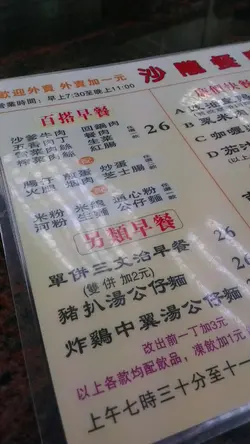 歡迎外賣 外賣加一元
營業時間：早上7:30至晚上11:00
沙隴餐
百搭早餐
沙爹牛肉 回鍋肉
五香肉丁 餐肉
榨菜肉絲 生菜
雪菜肉絲 紅腸
26
腸仔 炒蛋
火腿 芝士腸
米粉 米線 通心粉
河粉 公仔麵
另類早餐
單併三文治早餐
(雙併加2元)
26
豬扒湯公仔麵
26
炸雞中翼湯公仔麵
改出前一丁加3元
以上各款均配飲品，凍飲加1元
上午七時三十分至十一
A
B 粟米
C 咖喱
D